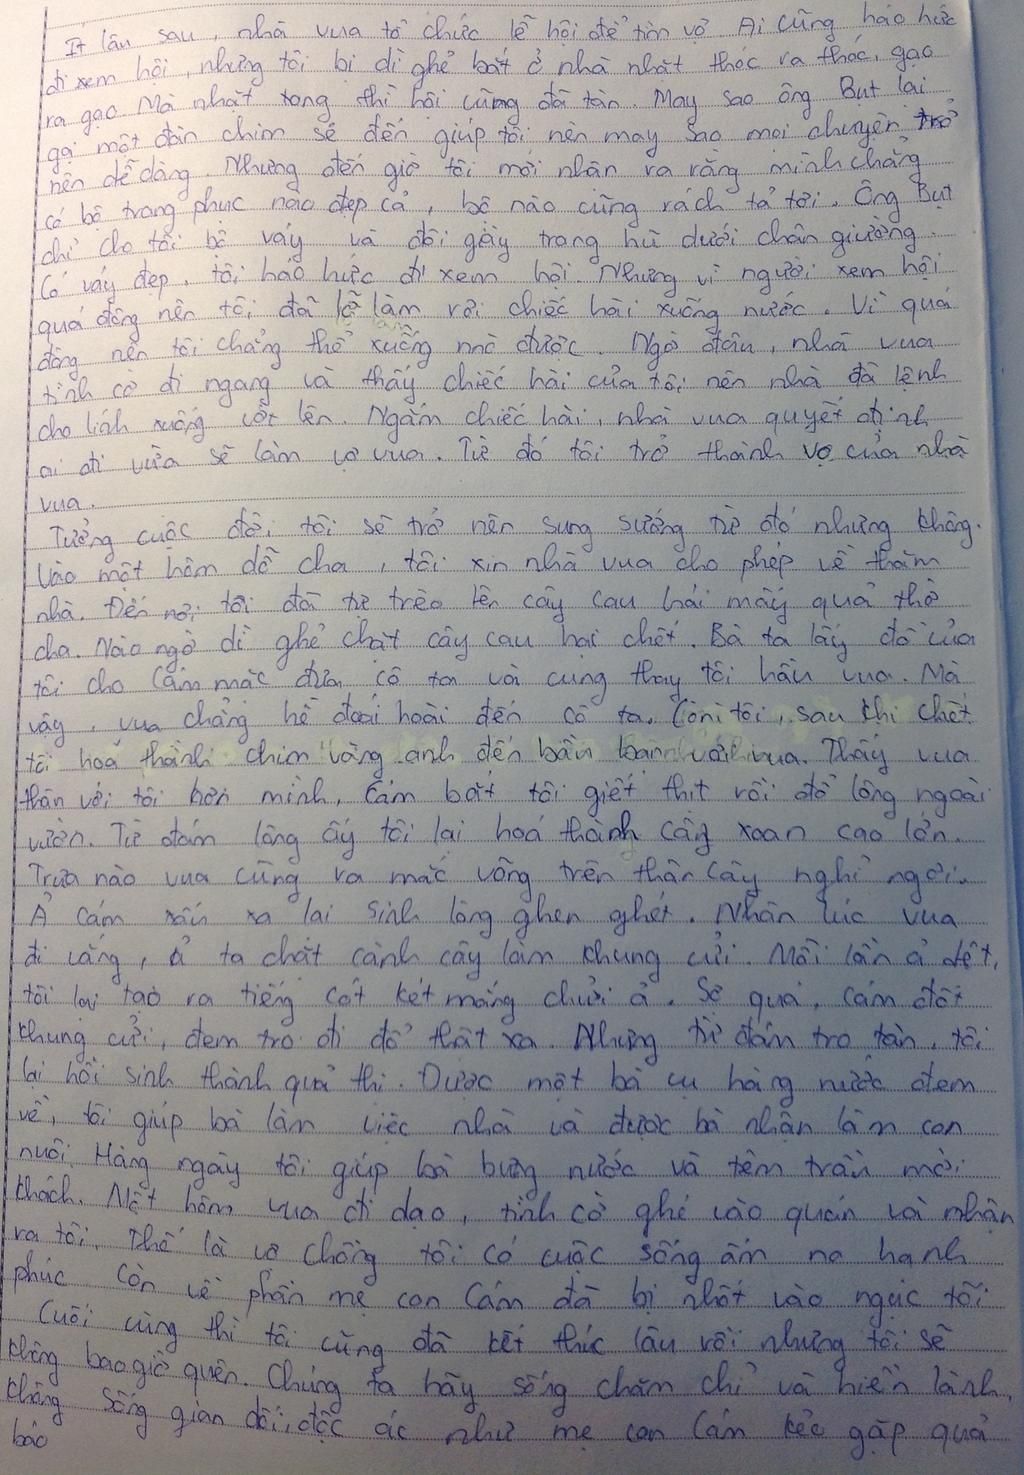 Ít lâu sau, nhà vua tổ chức lễ hội để tìm vợ. Ai cũng háo hức
đi xem hội, nhưng tôi bị dì ghẻ bắt ở nhà nhặt thóc ra thóc, gạo
ra gạo Mà nhặt xong thì hội cũng đã tàn. May sao ông Bụt lại
gọi một đàn chim sẻ đến giúp tôi nên may sao mọi chuyện trở
nên dễ dàng. Nhưng đến giờ tôi mới nhận ra rằng mình chẳng
có bộ trang phục nào đẹp cả, bộ nào cũng rách tả tơi. Ông Bụt
chỉ cho tôi bộ váy và đôi giày trong hũ dưới chân giường.
Có váy đẹp, tôi háo hức đi xem hội. Nhưng vì người xem hội
quá đông nên tôi đã lỡ làm rơi chiếc hài xuống nước. Vì quá
đông nên tôi chẳng thể xuống mò được. Ngờ đâu, nhà vua
tình cờ đi ngang và thấy chiếc hài của tôi nên nhà đã lệnh
cho lính xuống vớt lên. Ngắm chiếc hài, nhà vua quyết định
ai đi vừa sẽ làm vợ vua. Từ đó tôi trở thành vợ của nhà
vua.
Tưởng cuộc đời tôi sẽ trở nên sung sướng từ đó nhưng không.
Vào một hôm dỗ cha, tôi xin nhà vua cho phép về thăm
nhà. Đến nơi tôi đã tự trèo lên cây cau hái mấy quả thờ
cha. Nào ngờ dì ghẻ chặt cây cau hại chết. Bà ta lấy đồ của
tôi cho Cám mặc đưa cô ta vài cung thay tôi hầu vua. Mà
vậy, vua chẳng hề đoái hoài đến cô ta. Còn tôi, sau khi chết
tôi hoá thành chim vàng anh đến bầu bạn với vua. Thấy vua
thân với tôi hơn mình, Cám bắt tôi giết thịt rồi đổ lông ngoài
vườn. Từ đám lông ấy tôi lại hoá thành cây xoan cao lớn.
Trưa nào vua cũng ra mắc võng trên thân cây nghỉ ngơi.
Ả Cám xấu xa lại sinh lòng ghen ghét. Nhân lúc vua
đi vắng, ả ta chặt cành cây làm khung cửi. Mỗi lần ả dệt,
tôi lại tạo ra tiếng cót két mắng chửi ả. Sợ quá, Cám đốt
khung cửi, đem tro đi đổ thật xa. Nhưng từ đám tro tàn, tôi
lại hồi sinh thành quả thị. Được một bà cụ hàng nước đem
về, tôi giúp bà làm việc nhà và được bà nhận làm con
nuôi. Hàng ngày tôi giúp bà bưng nước và têm trầu mời
khách. Một hôm vua đi dạo, tình cờ ghé vào quán và nhận
ra tôi. Thế là vợ chồng tôi có cuộc sống ấm no hạnh
phúc còn về phần mẹ con Cám đã bị nhốt vào ngục tối
Cuối cùng thì tôi cũng đã kết thúc lâu rồi nhưng tôi sẽ
không bao giờ quên. Chúng ta hãy sống chăm chỉ và hiền lành,
không sống gian dối, độc ác như mẹ con Cám kẻo gặp quả
báo